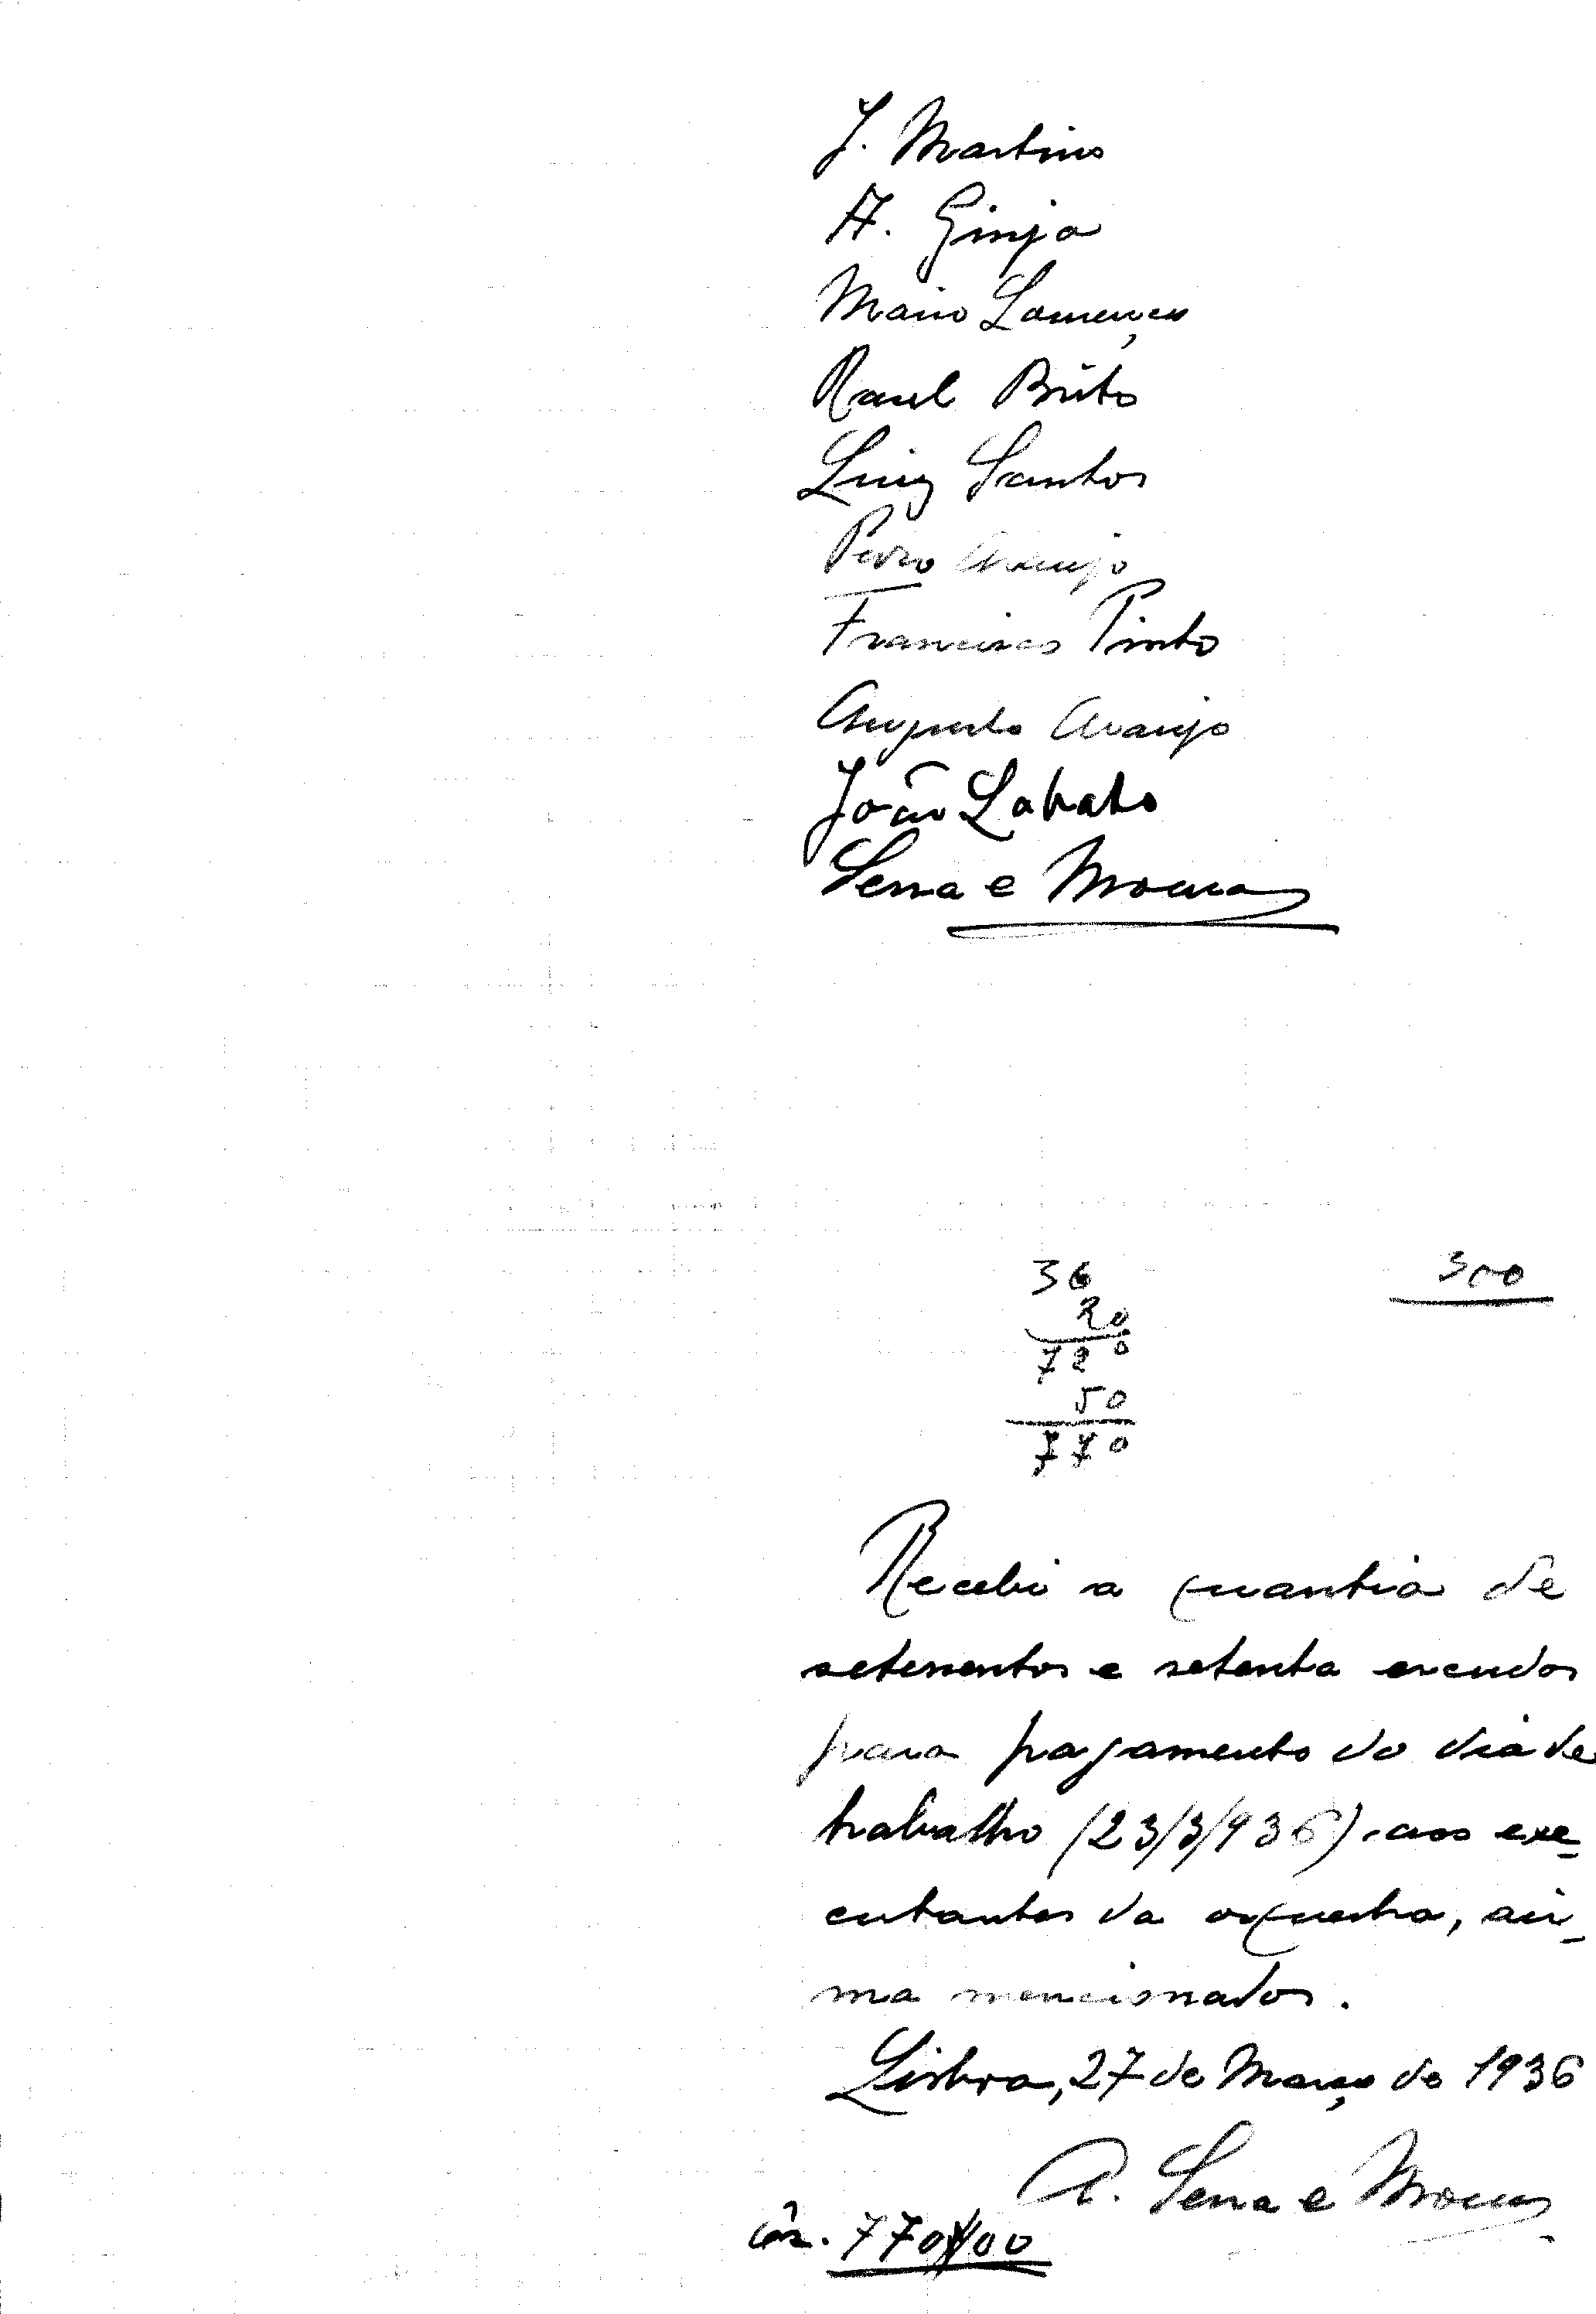 J. Martins
A. Ginja
Mario Lourenço
Raul Brito
Luiz Santos
Pedro Araujo
Francisco Pinto
Augusto Araujo
João Labato
Serra e Moura
36
20
720
50
770
300
Recebi a quantia de
setecentos e setenta escudos
para pagamento do dia de
trabalho (23/3/936) aos exe-
cutantes da orquestra, aci-
ma mencionados.
Lisboa, 27 de Março de 1936
A. Serra e Moura
770$00